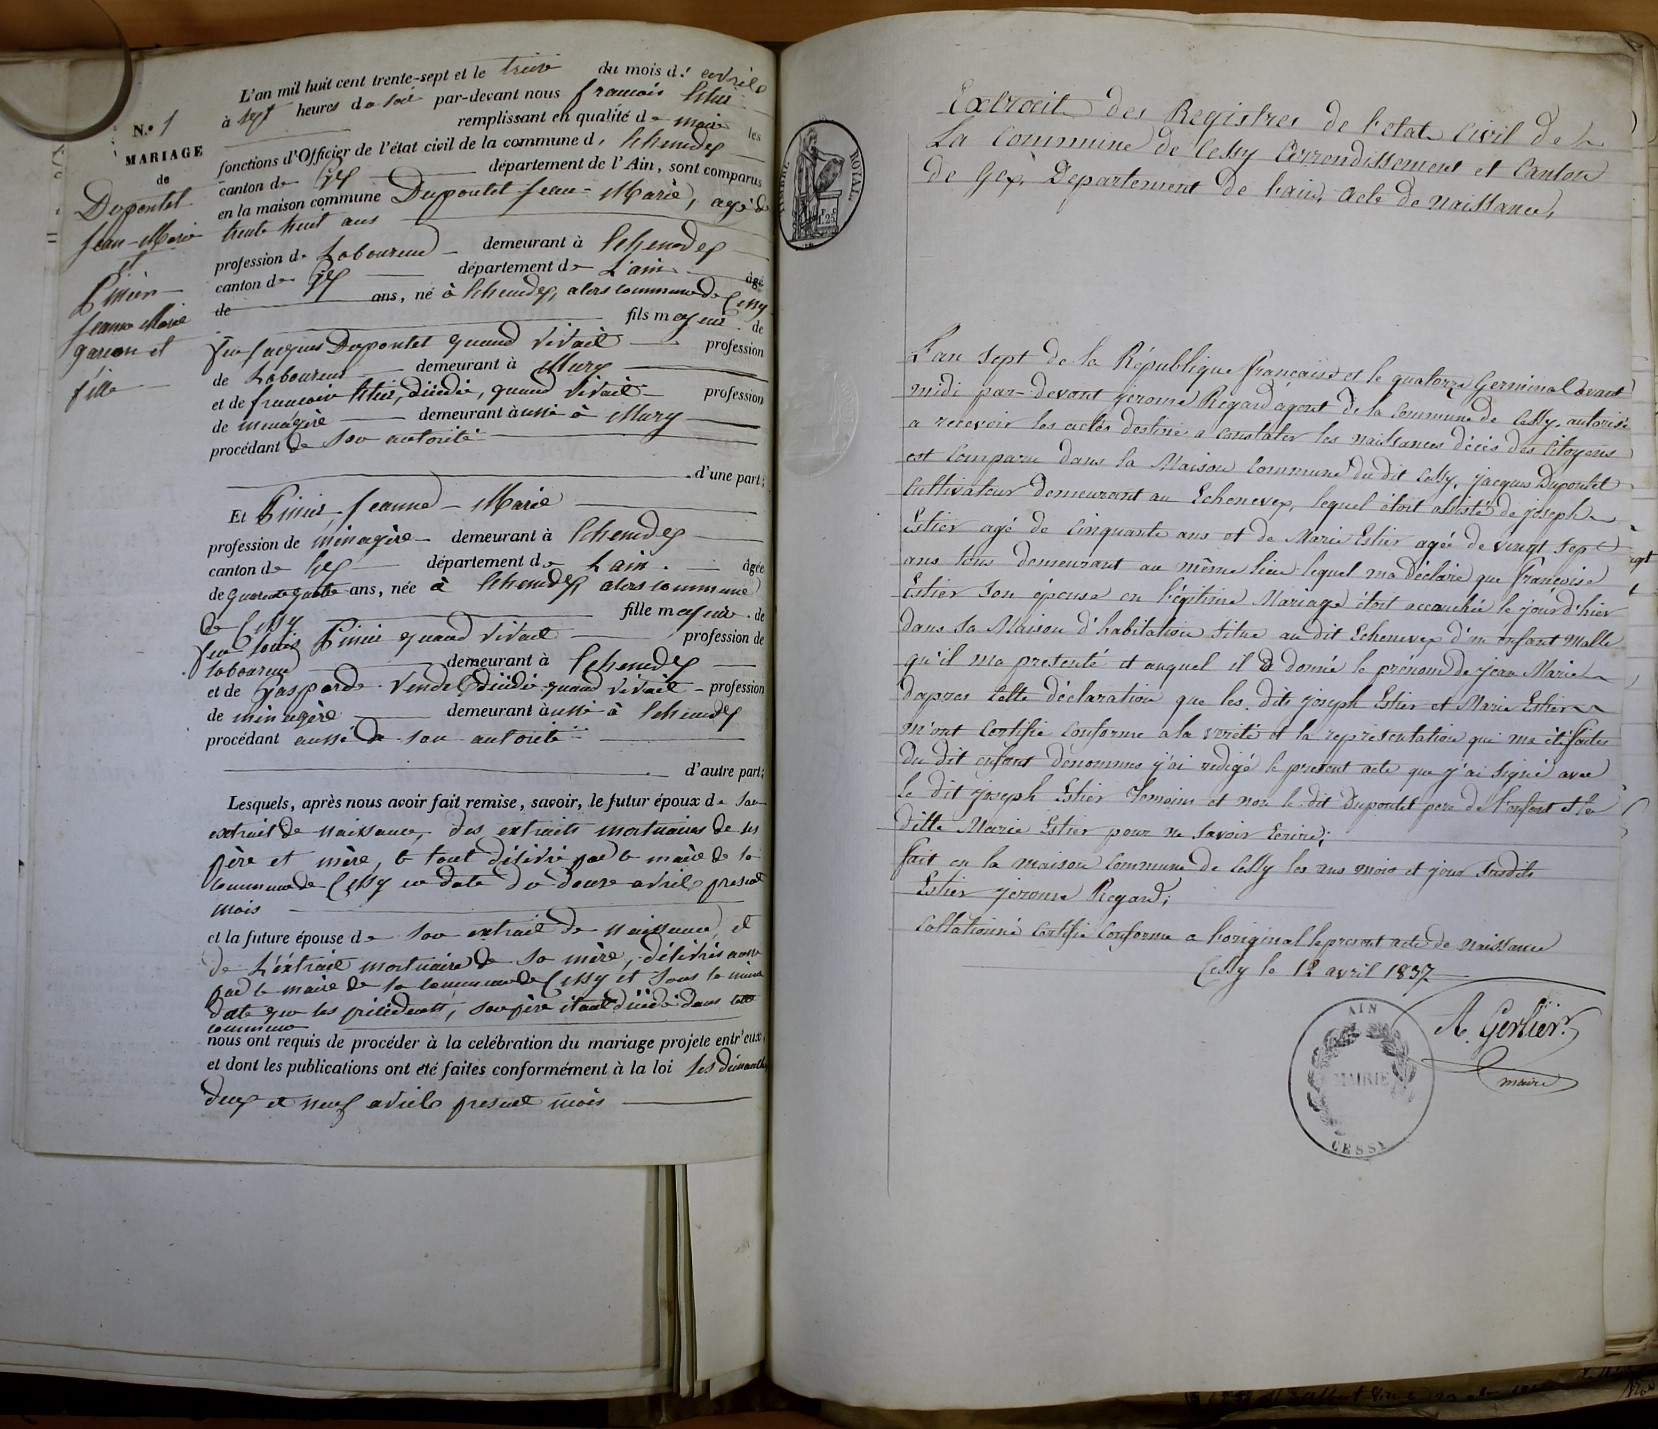 N.o 1
MARIAGE
de
Dupontet
Jean-Marie
et
Pinier
Jeanne Marie
garçon et
fille
L'an mil huit cent trente-sept et le treize du mois d'avril
à sept heures du soir par-devant nous françois Estier
remplissant en qualité de maire les
fonctions d'Officier de l'état civil de la commune d'Echenevex
canton de Gex département de l'Ain, sont comparus
en la maison commune Dupontet Jean-Marie, agé de
trente huit ans
profession de Laboureur demeurant à Echenevex
canton de Gex département de L'ain âgé
de ans, né à Echenevex, alors commune de Cessy
fils majeur de
feu Jacques Dupontet quand vivait profession
de Laboureur demeurant à Mury
et de francoise Estier, décédée, quand vivait profession
de ménagère demeurant aussi à Mury
procédant de son autorité
d'une part;
Et Pinier Jeanne-Marie
profession de ménagère demeurant à Echenevex
canton de Gex département de L'ain. âgée
de quarante quatre ans, née à Echenevex alors commune
de Cessy fille majeure de
feu Louis Pinier quand vivait profession de
laboureur demeurant à Echenevex
et de Gasparde décédée quand vivait - profession
de ménagère demeurant aussi à Echenevex
procédant aussi de son autorité
d'autre part;
Lesquels, après nous avoir fait remise, savoir, le futur époux de son
extrait de naissance, des extraits mortuaires de ses
père et mère, le tout délivré par le maire de la
commune de Cessy en date du douze avril présent
mois
et la future épouse de son extrait de naissance, et
de L'extrait mortuaire de sa mère, délivrés aussi
par le maire de la commune de Cessy et sous la même
date que les précédents, son père étant décédé dans cette
commune
nous ont requis de procéder à la celébration du mariage projete entr'eux,
et dont les publications ont été faites conformément à la loi les dimanches
deux et neuf avril présent mois
TIMBRE ROYAL
Extrait des Registres de l'etat Civil de
La Commune de Cessy Arrondissement et Canton
de Gex, Departement de l'ain, acte de naissance,
L'an sept de la République française et le quatorze Germinal avant
midi par-devant jerome Regard agent de la Commune de Cessy, autorisé
a recevoir les actes destiné a constater les naissances décès des Citoyens
est Comparu dans la Maison Commune du dit Cessy, jacques Dupontet
Cultivateur demeurant au Echenevex, lequel étoit assisté de joseph
Estier agé de Cinquante ans et de Marie Estier agée de vingt sept
ans tous demeurant au même lieu lequel ma Déclaré que françoise
Estier son épouse en légitime Mariage étoit accouchée le jour d'hier
dans sa Maison d'habitation située au dit Echenevex d'un enfant Malle
qu'il ma presenté et auquel il a donné le prénom de jean Marie
d'apres cette déclaration que les dits joseph Estier et Marie Estier
m'ont Certifie Conforme a la verité et la representation qui ma été faites
du dit enfant dénommés j'ai redigé le present acte que j'ai signé avec
le dit joseph Estier temoins et non le dit Dupontet pere de l'enfant et la
ditte Marie Estier pour ne savoir Ecrire;
fait en la maison Commune de Cessy les ans mois et jour susdits
Estier jerome Regard;
Collationné Certifié Conforme a l'original le present acte de naissance
Cessy le 12 avril 1837
A. Gerlier
maire
AIN
MAIRIE
CESSY